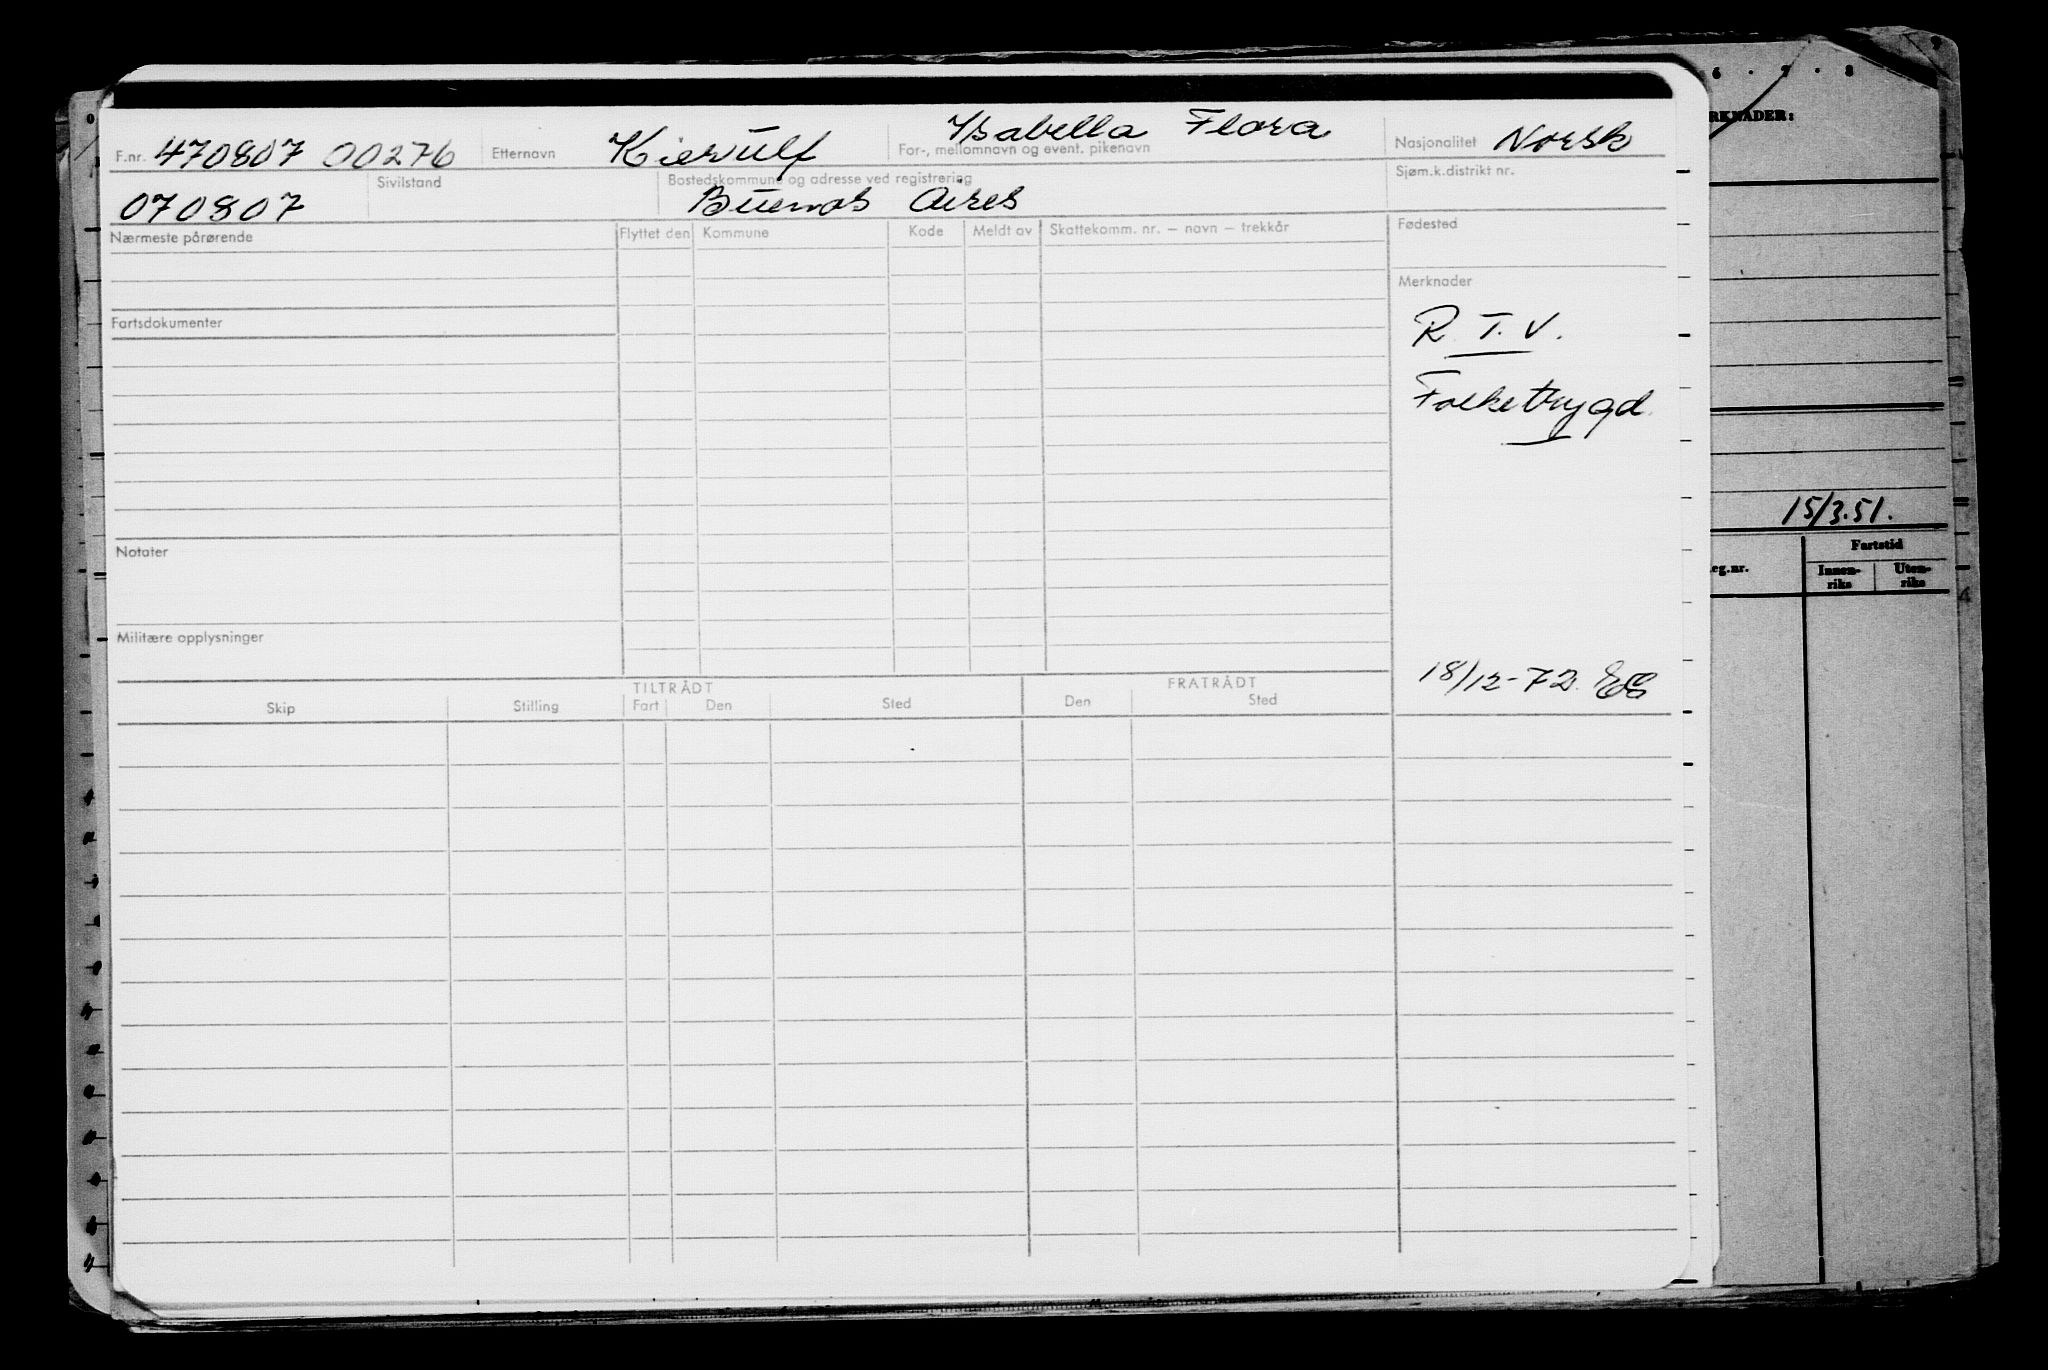 6 · 7 · 8
RKNADER:
F.nr. 470807 00276 Etternavn Kierulf Isabella Flora For-, mellomnavn og event. pikenavn Nasjonalitet Norsk
070807 Sivilstand Bostedskommune og adresse ved registrering Buenos Aires Sjøm.k.distrikt nr.
Nærmeste pårørende Flyttet den Kommune Kode Meldt av Skattekomm. nr. – navn – trekkår Fødested
Merknader
R.T.V.
Fartsdokumenter
Folketrygd.
15/3.51.
Notater
Fartstid
eg.nr. Innen-riks Uten-riks
Militære opplysninger
18/12-72.
TILTRÅDT FRATRÅDT
Skip Stilling Fart Den Sted Den Sted